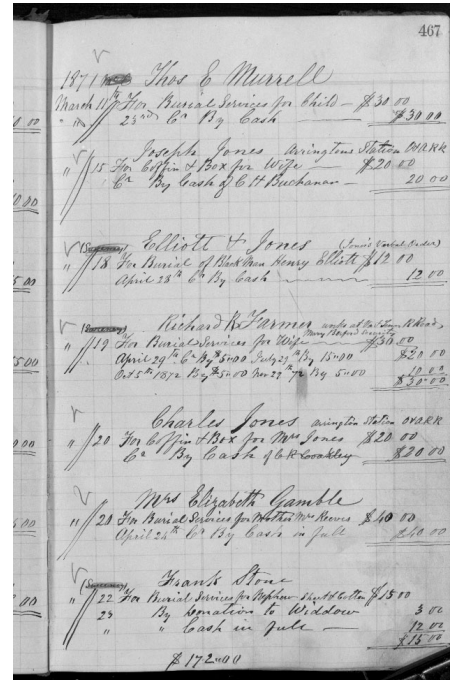 467
1871 Thos E Murrell
March 11th For Burial Services for Child — $30 00
" " 23rd Cr By Cash $30 00
Joseph Jones Station
" 15 For Coffin & Box for Wife $20 00
Cr By Cash of C H Buchanan — 20 00
Elliott & Jones (Jones Verbal Order)
" 18 For Burial of Black Man Henry Elliott $12 00
April 28th Cr By Cash 12 00
Richard R Farmer works at R Road
" 19 For Burial Services for Wife — $30 00
April 29th Cr By $5.00 July 29th By 15.00 $20 00
Oct 5th 1872 By $5.00 Nov 29th 72 By 5.00 10 00
$30.00
Charles Jones Station
" 20 For Coffin & Box for Mrs Jones $20 00
Cr By Cash of $20 00
Mrs Elizabeth Gamble
" 20 For Burial Services for Mother Mrs Reeves $40 00
April 24th Cr By Cash in full $40 00
Frank Stone
" 22 For Burial Services for Nephew $15 00
" 23 By Donation to Widdow 3 00
" " Cash in full — 12 00
$15 00
$172.00